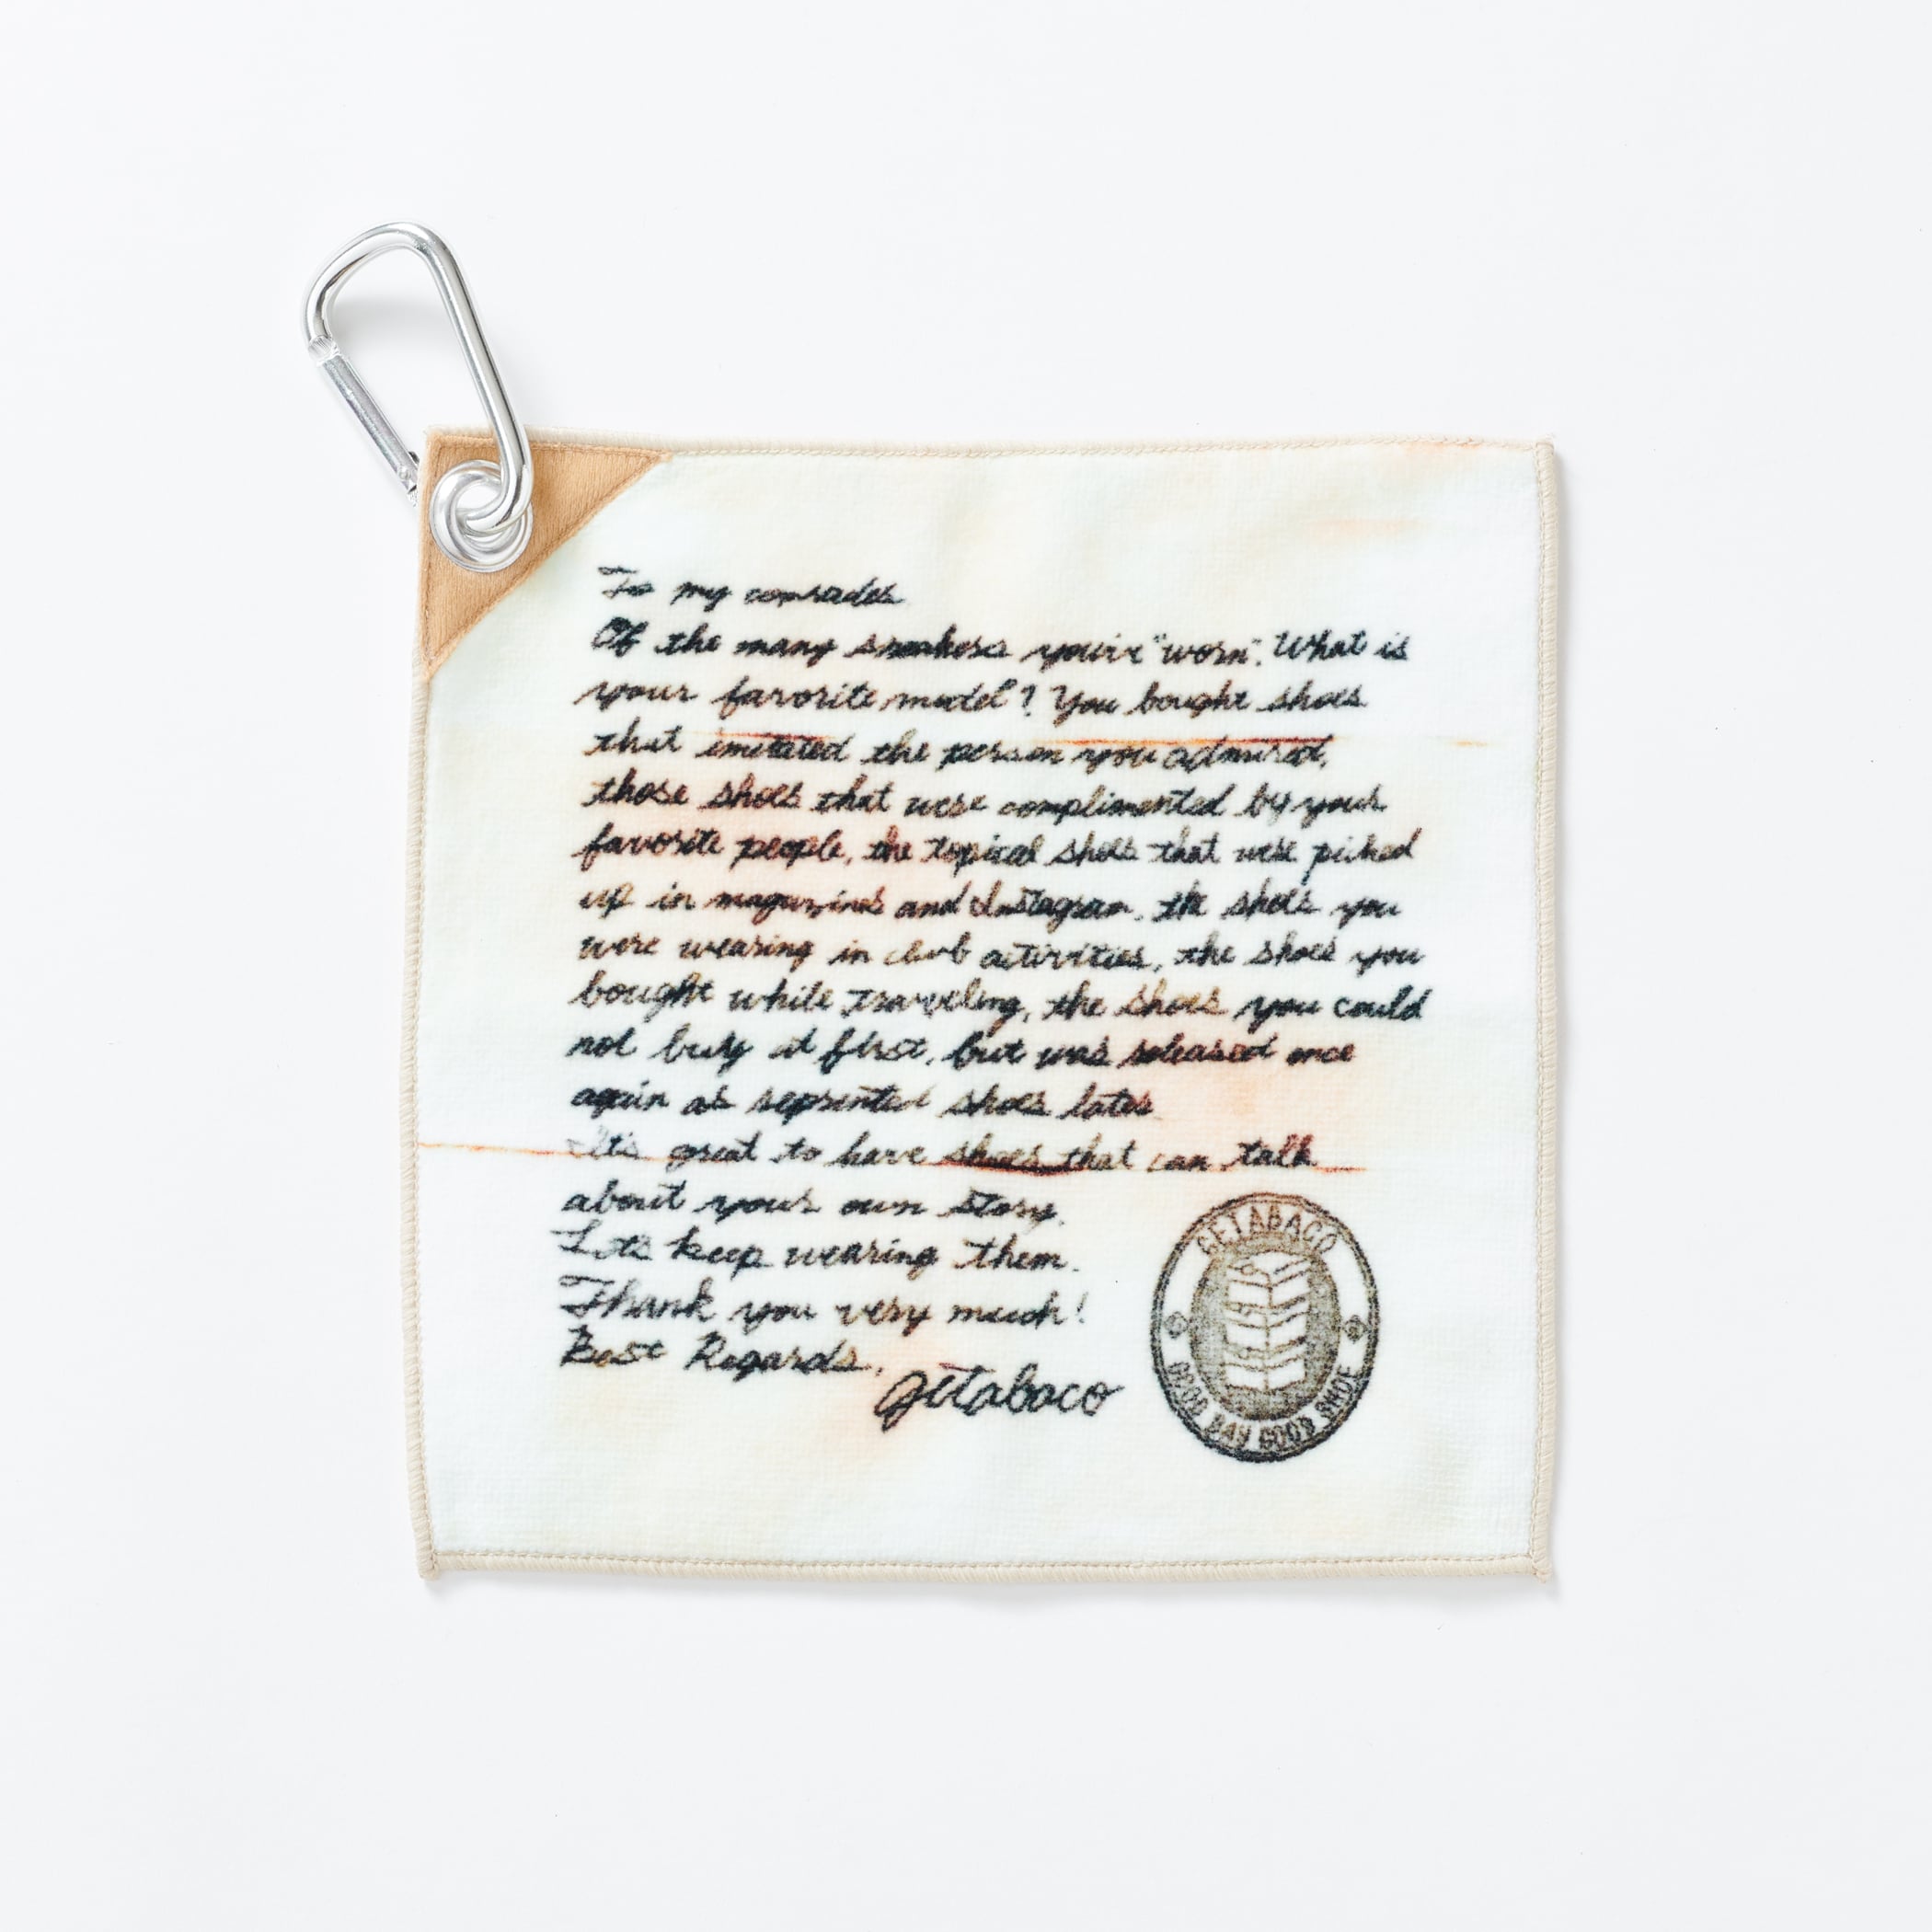 To my comrades
Of the many sneakers you've "worn". What is
your favorite model? You bought shoes
that imitated the person you admired,
those shoes that were complimented by your
favorite people, the topical shoes that were picked
up in magazines and Instagram, the shoes you
were wearing in club activities, the shoes you
bought while traveling, the shoes you could
not buy at first, but was released once
again as reprinted shoes later.
It's great to have shoes that can talk
about your own story.
Let's keep wearing them.
Thank you very much!
Best Regards,
getabaco
GETABACO
GOOD DAY GOOD SHOE